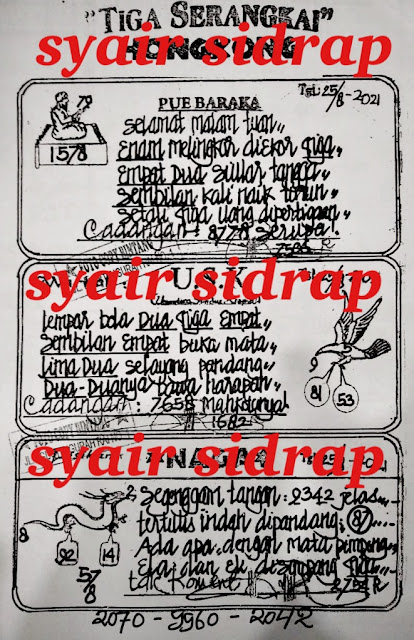 "TIGA SERANGKAI"
HONGKONG
syair sidrap
PUE BARAKA
Tgl: 25/8-2021
Selamat malam tuan,,
Enam melingkar diekor tiga
Empat Dua siular tangga
Sembilan kali naik turun
Setali tiga uang
Cadangan: 8778 Serupa!
1578
syair sidrap
U.S.K
lempar bola Dua tiga Empat,,
Sembilan Empat buka mata,
lima Dua selayang pandang
Dua-Duanya bawa harapan,,
Cadangan: 7658 Mahkotanya!
1682
9
81
53
syair sidrap
NAGA
Segenggam tangan: 2342 jelas...
tertulis indah dipandang (87)....
Ada apa dengan mata
Eka dan eki disimpang tiga
tak koment
8
2
92
14
57
8
2070 - 9960 - 2042